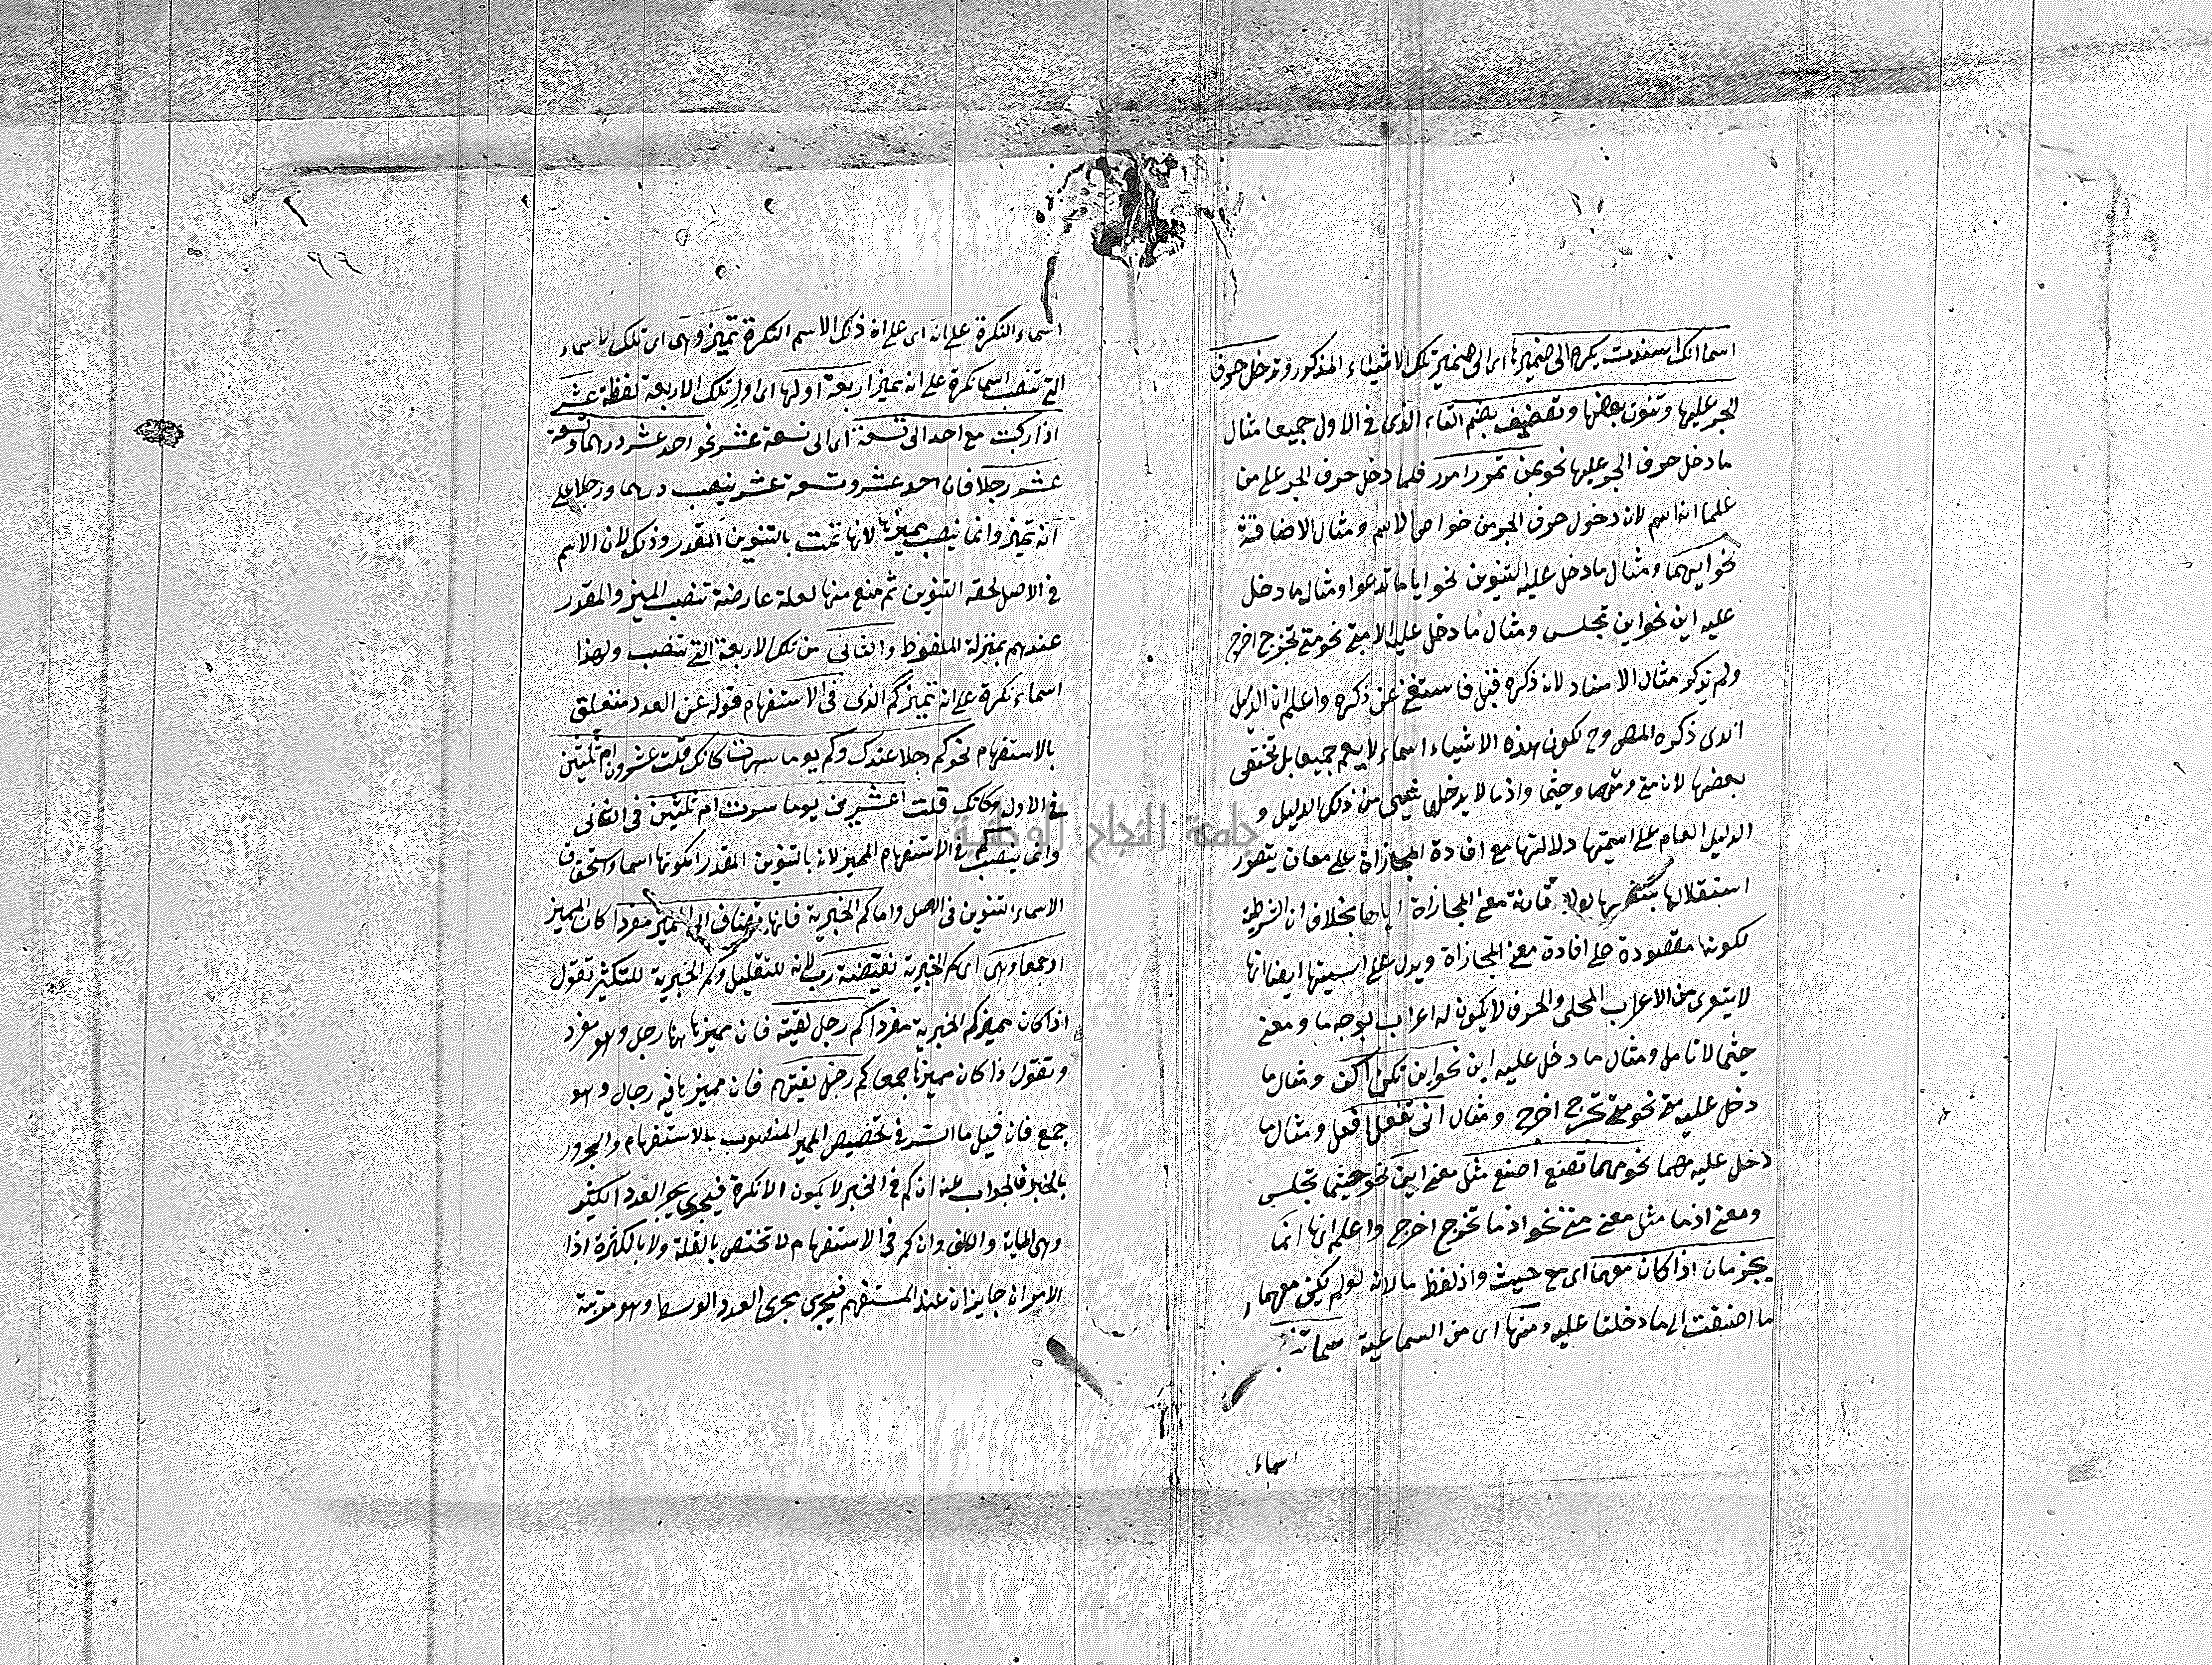 اسما انك اسندت يكرم الى ضميرها اى الى ضمير تلك الاشياء المذكور وتدخل حرف
الجر عليها وتنون بعضها وتضيف بضم التاء الذى فى الاول جميعا مثال
ما دخل حرف الجر عليها نحو بمن تمرر امرر فلما دخل حرف الجر على من
علما انه اسم لان دخول حرف الجر من خواص الاسم ومثال الاضافة
نحو ايهما ومثال ما دخل عليه التنوين نحو ايا ما تدعوا ومثال ما دخل
عليه اين نحو اين تجلس ومثال ما دخل عليه الا متى نحو متى تخرج اخرج
ولم يذكر مثال الاسناد لانه ذكره قبل فاستغنى عن ذكره واعلم ان الدليل
الذى ذكره المص وح لكون هذه الاشياء اسماء لا يعم جميعا بل تختفى
بعضها لان متى ومهما وحيثما واذما لا يدخلها شىء من ذلك الدليل و
الدليل العام على اسميتها دلالتها مع افادة المجازاة على معان يتصور
استقلالها بنفسها لولا معنى المجازاة اياها بخلاف ان الشرطية
لكونها مقصودة على افادة معنى المجازاة ويدل على اسميتها ايضا انها
لا يتعرى من الاعراب المحلى والحرف لا يكون له اعراب بوجه ما ومعنى
حيثما لا تامل ومثال ما دخل عليه اين نحو اين تكن اكن ومثال ما
دخل عليه متى نحو متى تخرج اخرج ومثال انى تفعل افعل ومثال ما
دخل عليه مهما نحو مهما تصنع اصنع مثل معنى اين نحو حيثما تجلس
ومعنى اذما مثل معنى متى نحو اذما تخرج اخرج واعلم انها انما
يجزمان اذا كان معهما اى مع حيث واذ لفظ ما لانه لو لم يكن معهما
ما اضيفت الى ما دخلتا عليه ومنها اى من السماعية
اسماء
٩٩
اسماء النكرة على انه اى على ان ذلك الاسم النكرة تميز وهى اى تلك الاسماء
التى تنصب اسما نكرة على انه مميز اربعة اولها اى اول تلك الاربعة لفظة عشر
اذا ركبت مع احد الى تسعة اى الى تسعة عشر نحو احد عشر درهما وتسعة
عشر رجلا فان احد عشر وتسعة عشر ينصب درهما ورجلا على
انه تميز وانما ينصب مميزها لانها تمت بالتنوين المقدر وذلك لان الاسم
فى الاصل لحقه التنوين ثم منع منها لعلة عارضة تنصب المميز والمقدر
عندهم بمنزلة الملفوظ والثانى من تلك الاربعة التى تنصب ولهذا
اسماء نكرة على انه تميز كم الذى فى الاستفهام قوله عن العدد متعلق
بالاستفهام نحو كم رجلا عندك وكم يوما سرت كانك قلت عشرون ام ثلثين
فى الاول وكانك قلت اعشرين يوما سرت ام ثلثين فى الثانى
وانما ينصب كم فى الاستفهام المميز لانه بالتنوين المقدر لكونها اسما واستحقاق
الاسماء التنوين فى الاصل واما كم الخبرية فانها تضاف الى المميز مفردا كان المميز
او جمعا وهى اى كم الخبرية نقيضة رب لانه للتقليل وكم الخبرية للتكثير تقول
اذا كان مميز كم الخبرية مفردا كم رجل لقيته فان مميزها هنا رجل وهو مفرد
وتقول اذا كان مميزها جمعا كم رجال لقيتهم فان مميزها فيه رجال وهو
جمع فان قيل ما السر فى تخصيص المميز المنصوب بالاستفهام والمجرور
بالخبر فالجواب عنه ان كم فى الخبر لا يكون الا نكرة فيجرى مجرى العدد الكثير
وهى الماية والالف وان كم فى الاستفهام لا تختص بالقلة ولا بالكثرة اذا
الامران جايزان عند المستفهم فيجرى مجرى العدد الوسط وهو مرتبة
جامعة النجاح الوطنية